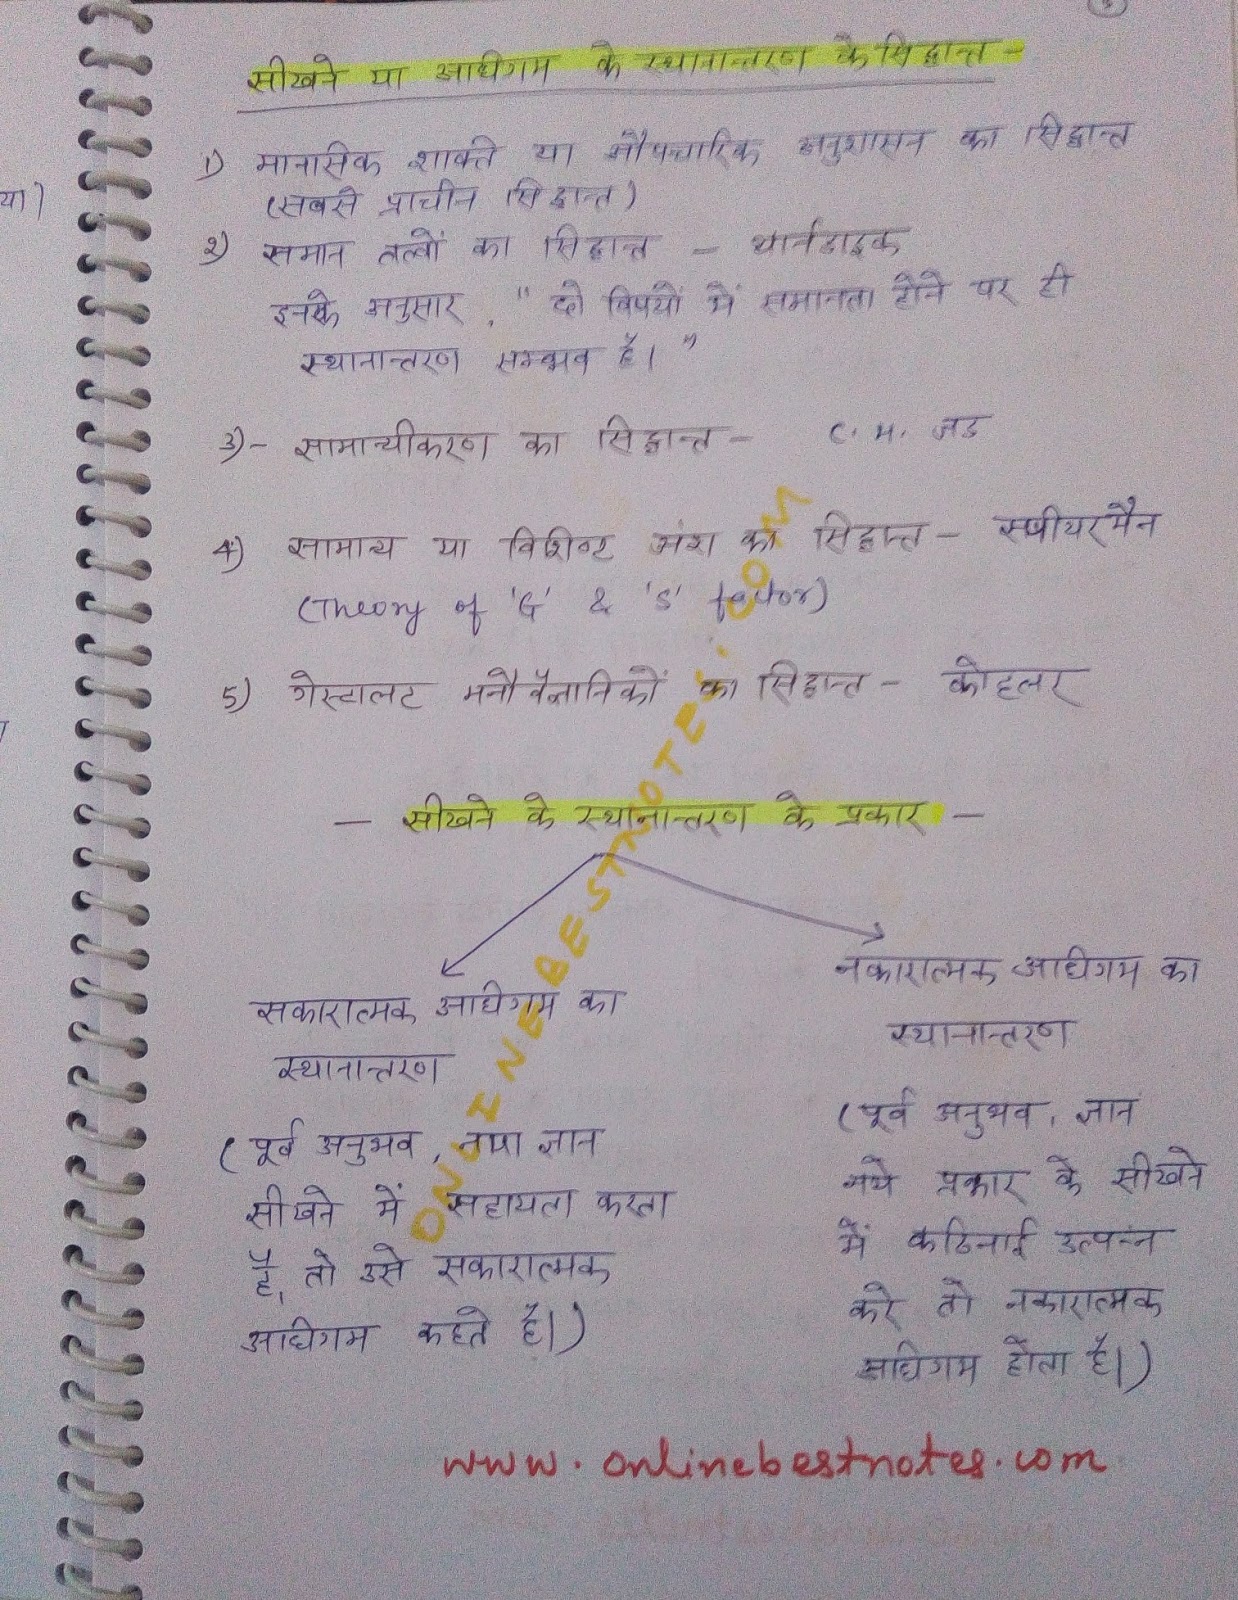 सीखने या अधिगम के स्थानान्तरण के सिद्धान्त -
1) मानसिक शक्ति या औपचारिक अनुशासन का सिद्धान्त
(सबसे प्राचीन सिद्धान्त)
या)
2) समान तत्वों का सिद्धान्त - थार्नडाइक
इनके अनुसार, " दो विषयों में समानता होने पर ही
स्थानान्तरण सम्भव है। "
3) - सामान्यीकरण का सिद्धान्त - C. H. जड
4) सामान्य या विशिष्ट अंश का सिद्धान्त - स्पीयरमैन
(Theory of 'G' & 'S' factor)
5) गेस्टालट मनोवैज्ञानिकों का सिद्धान्त - कोहलर
- सीखने के स्थानान्तरण के प्रकार -
सकारात्मक अधिगम का
स्थानान्तरण
(पूर्व अनुभव, नया ज्ञान
सीखने में सहायता करता
है, तो उसे सकारात्मक
अधिगम कहते है।)
नकारात्मक अधिगम का
स्थानान्तरण
(पूर्व अनुभव, ज्ञान
नये प्रकार के सीखने
में कठिनाई उत्पन्न
करे तो नकारात्मक
अधिगम होता है।)
ONLINEBESTNOTES.COM
www.onlinebestnotes.com